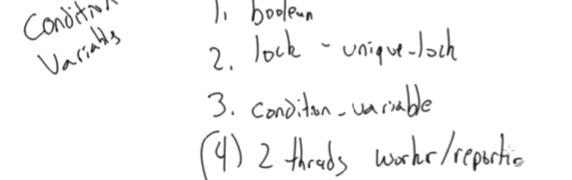 Condition
Variables
1. boolean
2. lock - unique_lock
3. condition_variable
(4) 2 threads worker/reporting